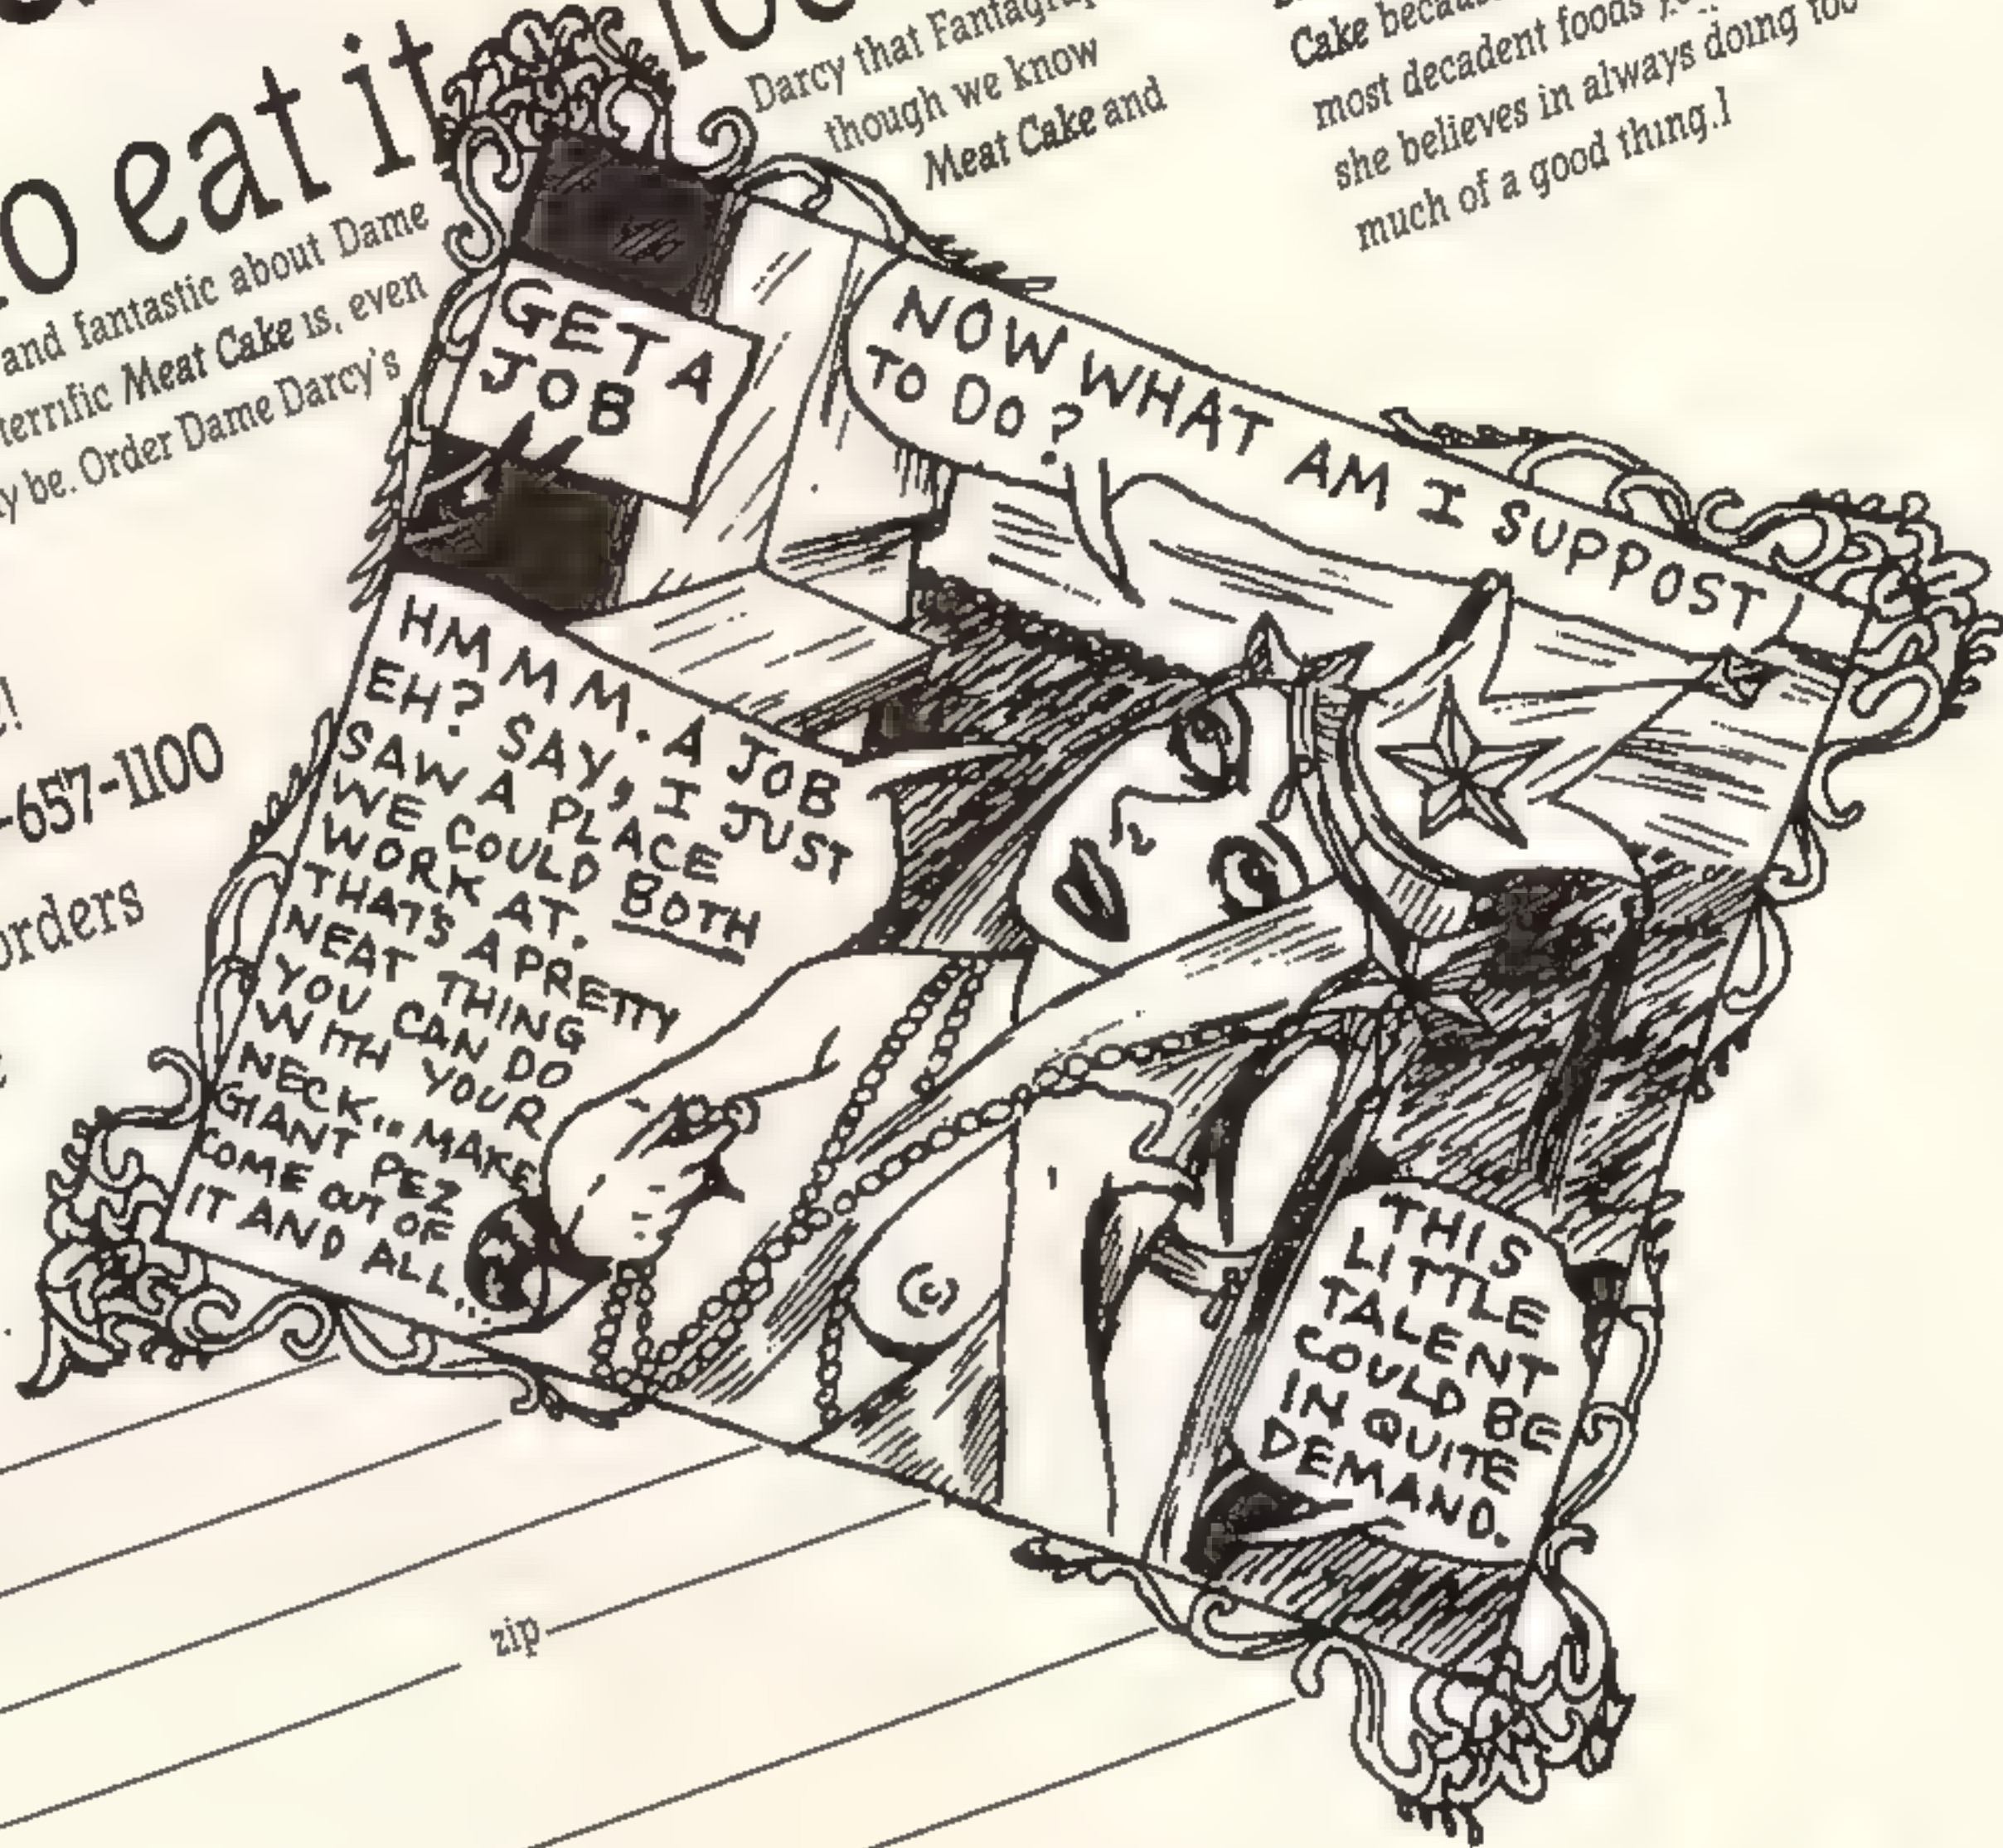 o eat it,
and fantastic about Dame
terrific Meat Cake is, even
y be. Order Dame Darcy's
Darcy that
though we know
Meat Cake and
Cake
most decadent foods
she believes in always doing too
much of a good thing.]
-657-1100
orders
zip
GET A
JOB
NOW WHAT AM I SUPPOST
TO DO?
HMMM. A JOB
EH? SAY, I JUST
SAW A PLACE
WE COULD BOTH
WORK AT.
THAT'S A PRETTY
NEAT THING
YOU CAN DO
WITH YOUR
NECK... MAKE
GIANT PEZ
COME OUT OF
IT AND ALL...
THIS
LITTLE
TALENT
COULD BE
IN QUITE
DEMAND.